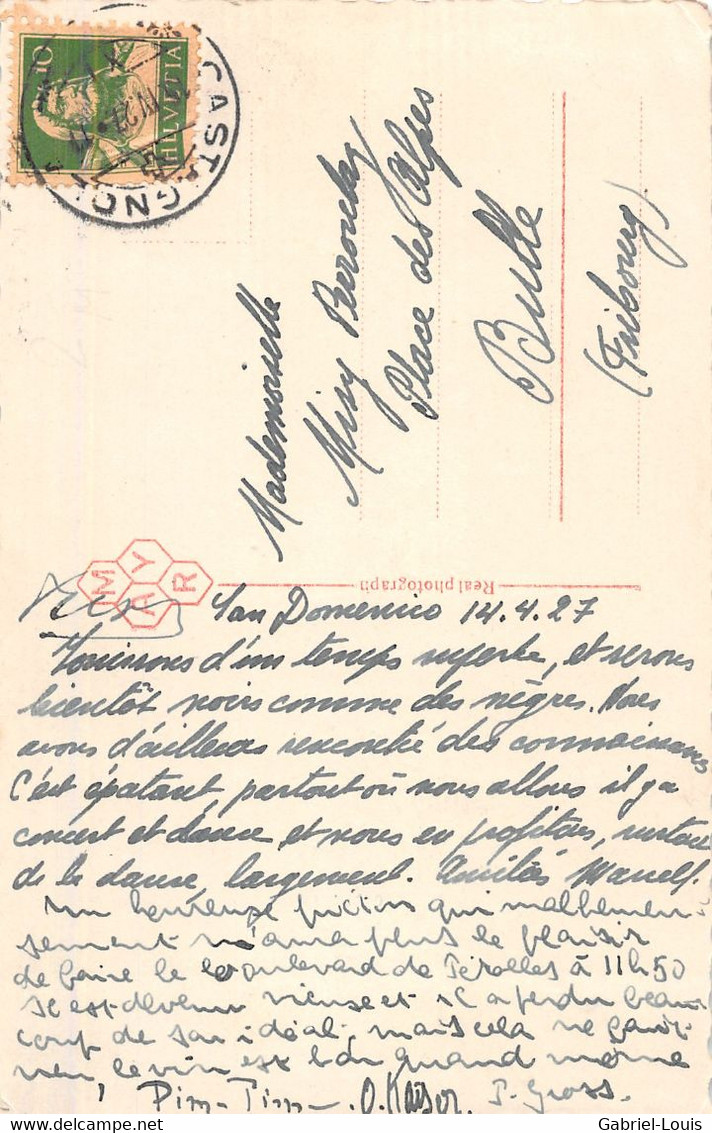 10
HELVETIA
CASTAGNOLA
Mademoiselle
Place des Alpes
Bulle
(Fribourg)
MAYR
Real photograph
San Domenico 14.4.27
Jouissons d'un temps superbe, et serons
bientôt noirs comme des nègres. Nous
avons d'ailleurs rencontré des connaissances
C'est épatant, partout où nous allons il y a
concert et danse et nous en profitons, surtout
de la danse, largement. Amitiés Marcel.
Un heureux qui malheureu-
sement n'aura plus le plaisir
de faire le boulevard de Pérolles à 11h50
Il est devenu et il a perdu beau-
coup de son idéal, mais cela ne fait
rien, le vin est bon quand même
Pim-Tim- O. Kaiser. P. Gross.
Gabriel-Louis